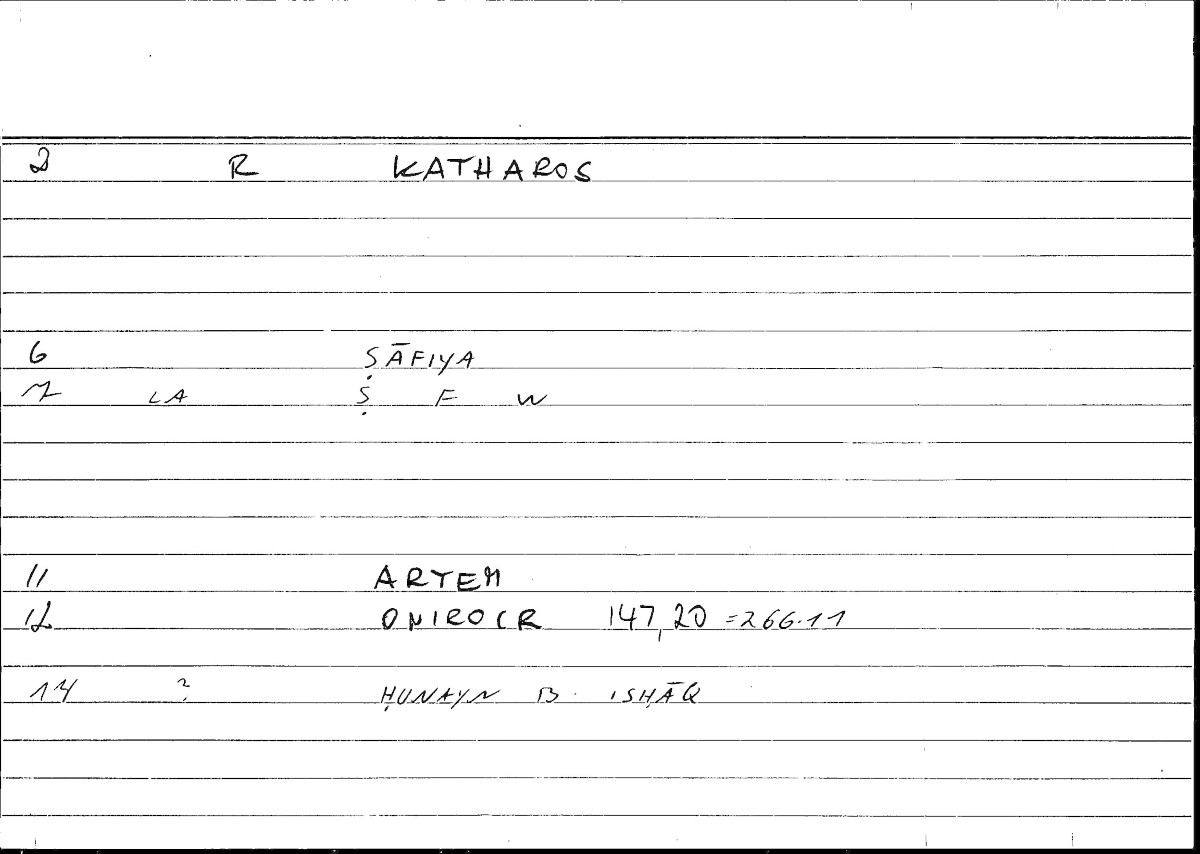 2 R KATHAROS
6 ṢĀFIYA
7 LA Ṣ F W
11 ARTEM
12 ONIROCR 147,20 =266.11
14 ? ḤUNAYN B. ISḤĀQ